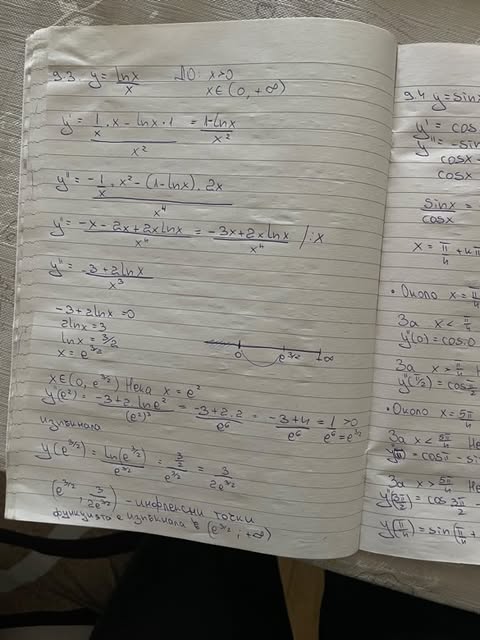 9.3. y = lnx/x ДО: x>0
x∈(0, +∞)
y' = (1/x . x - lnx . 1)/x² = (1-lnx)/x²
y'' = (-1/x . x² - (1-lnx) . 2x)/x⁴
y'' = (-x - 2x + 2xlnx)/x⁴ = (-3x + 2xlnx)/x⁴ /:x
y'' = (-3+2lnx)/x³
-3+2lnx = 0
2lnx = 3
lnx = 3/2
x = e^(3/2)
0 e^(3/2) +∞
x∈(0, e^(3/2)) Нека x = e²
y(e²) = (-3+2lne²)/(e²)³ = (-3+2.2)/e⁶ = (-3+4)/e⁶ = 1/e⁶ >0
изпъкнала
y(e^(3/2)) = ln(e^(3/2))/e^(3/2) = (3/2)/e^(3/2) = 3/(2e^(3/2))
(e^(3/2), 3/(2e^(3/2))) - инфлексни точки
функцията е изпъкнала в (e^(3/2), +∞)
9.4 y = sinx
y' = cos
y'' = -sin
cosx -
cosx
sinx/cosx =
x = π/4 + kπ
• Около x = π/4
За x < π/4
y''(0) = cos0
За x > π/4
y''(π/2) = cosπ/2
• Около x = 5π/4
За x < 5π/4 Не
За x > 5π/4 Не
y(π/4) = sin(π/4 +